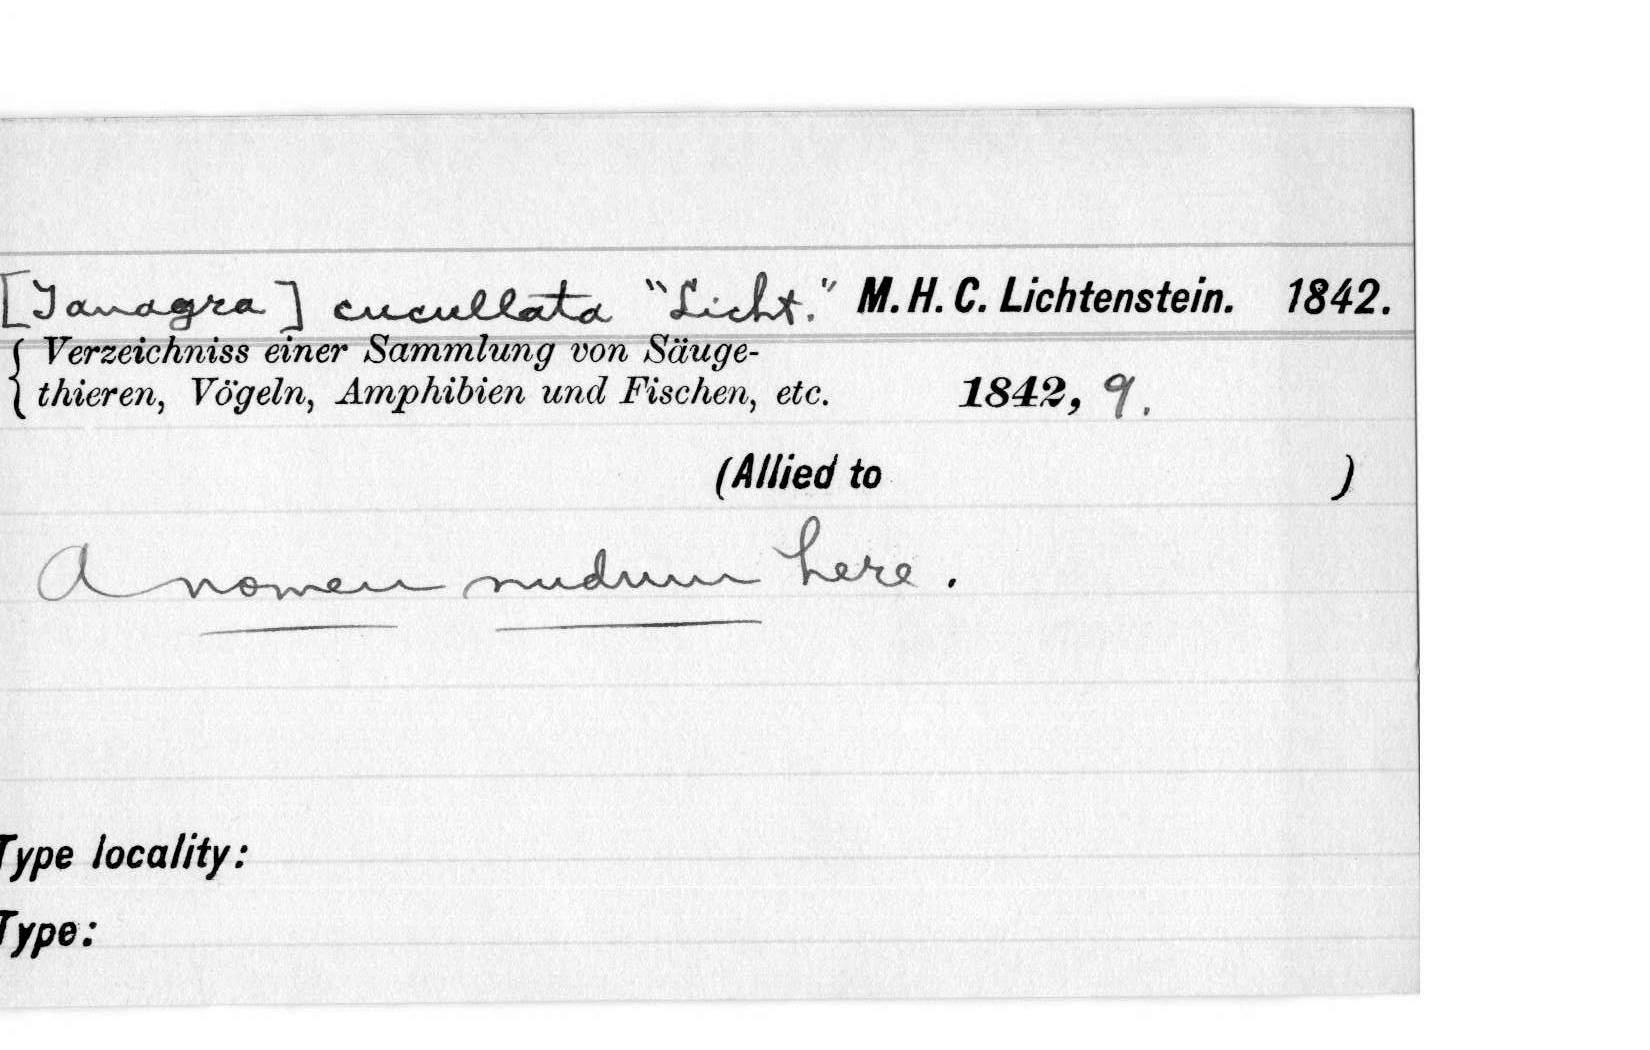 [Tanagra] cucullata "Licht." M. H. C. Lichtenstein. 1842.
Verzeichniss einer Sammlung von Säuge-
thieren, Vögeln, Amphibien und Fischen, etc. 1842, 9.
(Allied to )
A nomen nudum here.
Type locality:
Type: